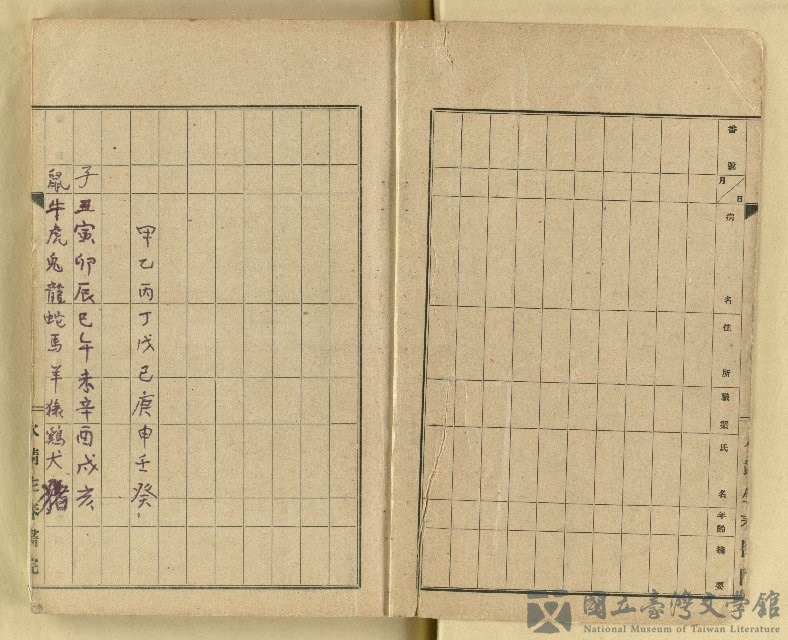 番號
月日
病名
住所
職業
氏名
年齡
摘要
甲乙丙丁戊己庚申壬癸
子丑寅卯辰巳午未辛酉戌亥
鼠牛虎兔龍蛇馬羊猿鷄犬猪
醫院
國立臺灣文學館
National Museum of Taiwan Literature